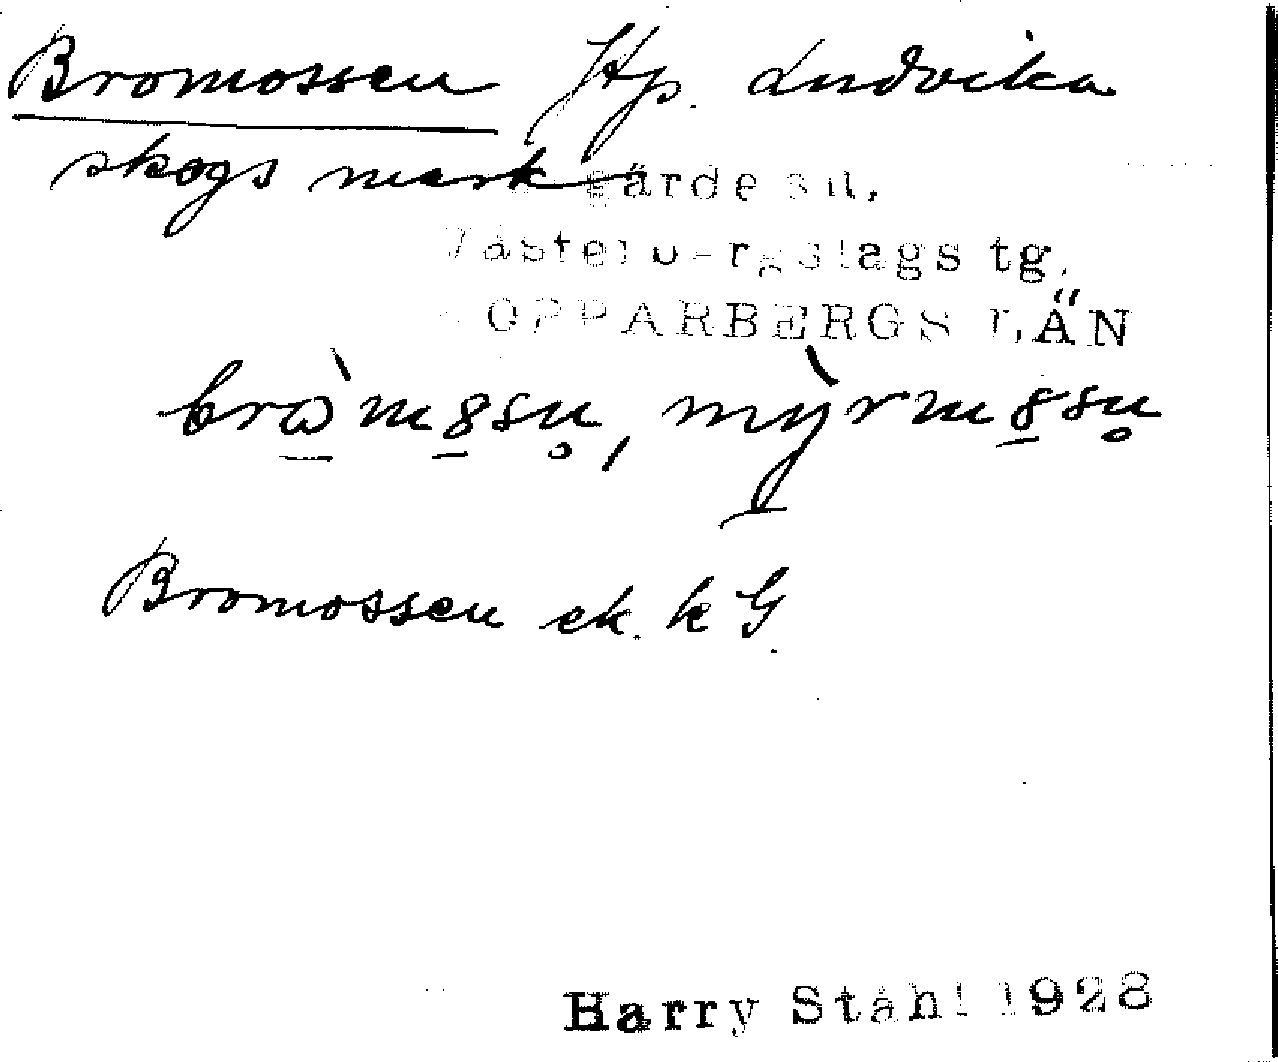 Bromossen Htp. Ludvika
skogs mark
gärde sn.
Västerbergslags tg.
KOPPARBERGS LÄN
Bromossen ek. k G.
Harry Ståhl 1928